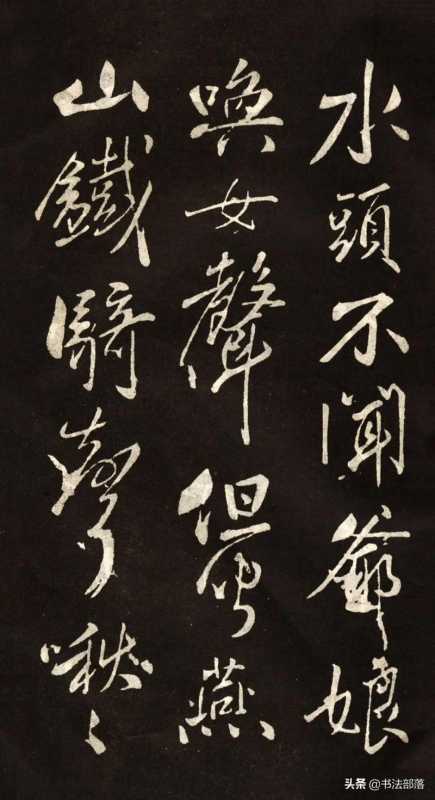 水頭不聞爺娘
喚女聲但聞燕
山鐵騎聲啾〻
头条 @书法部落